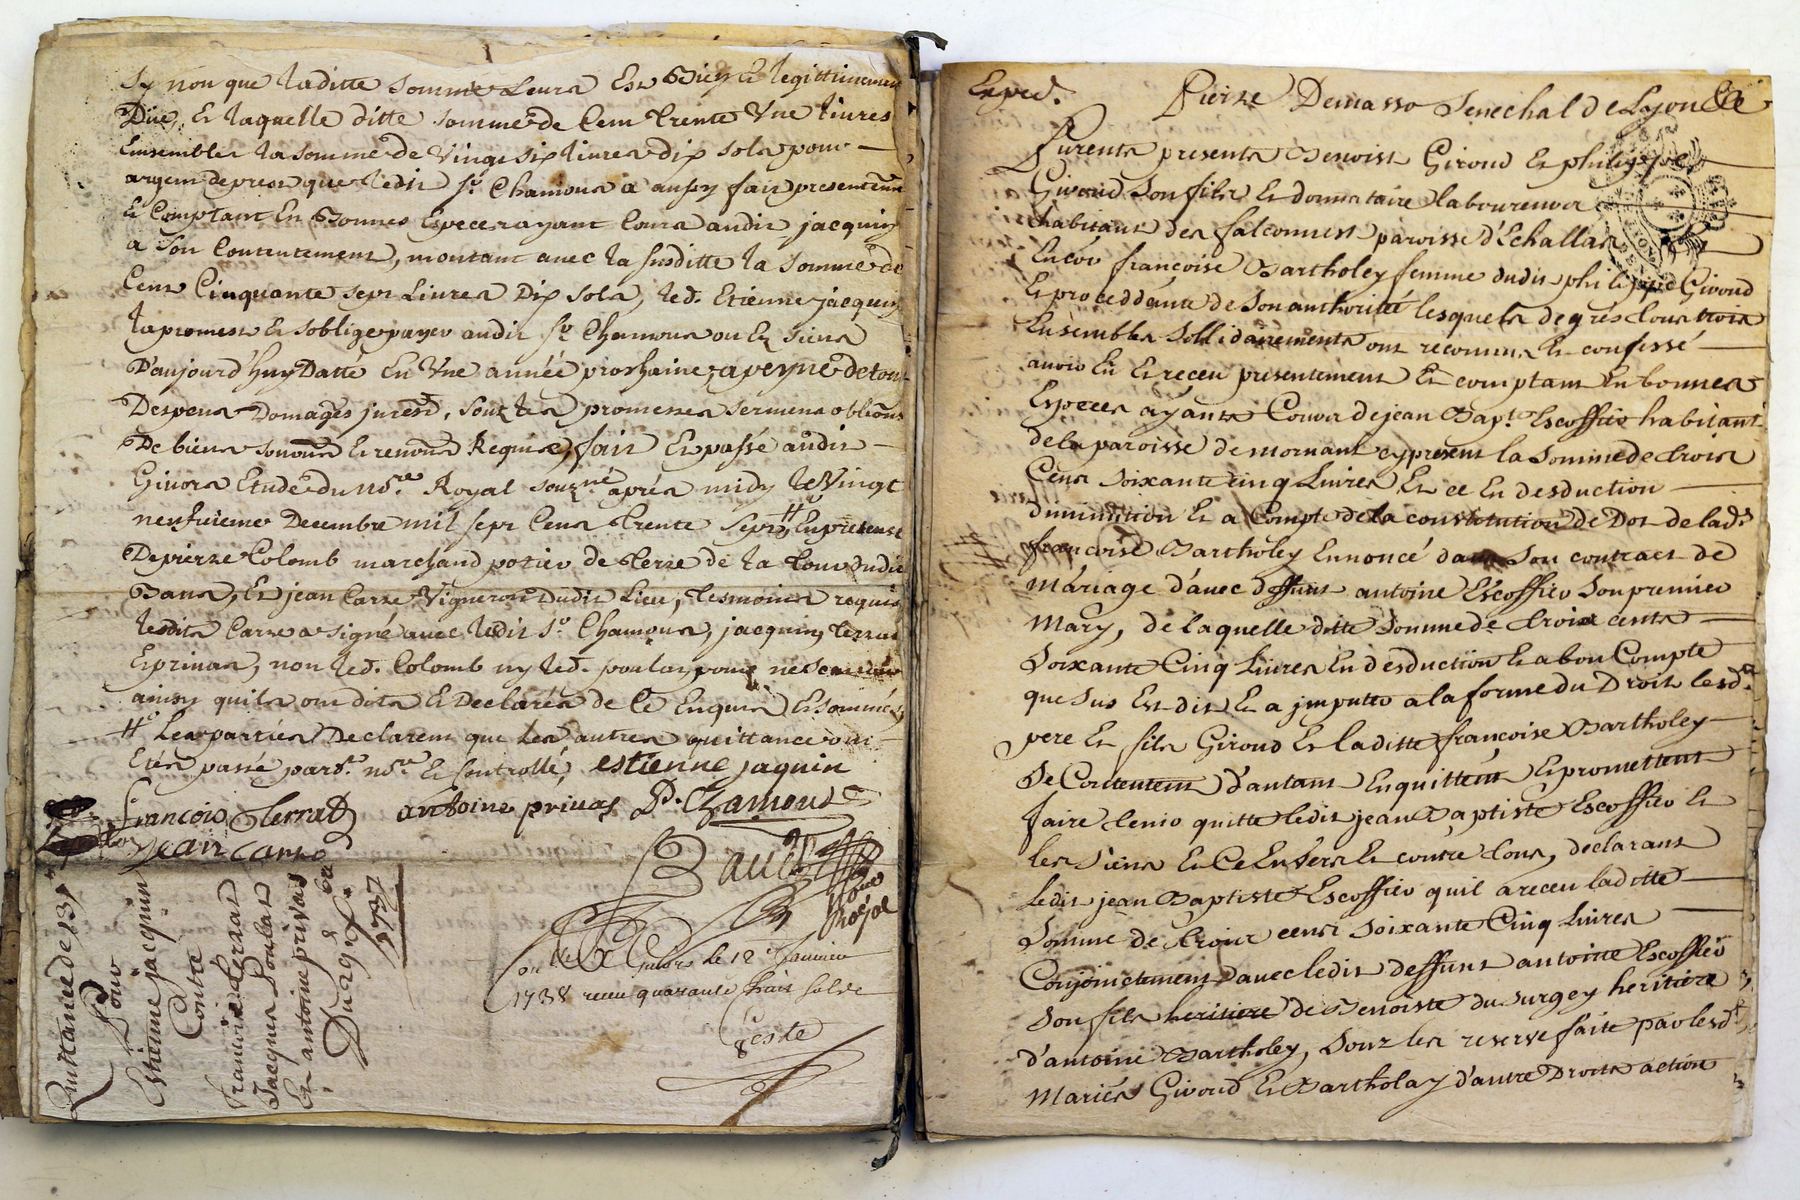 Sy non que laditte Somme Leurs Est Bien Et legittimement
Düe, Et laquelle ditte Somme de Cent trente Une livres
Ensembles la somme de Vingt six livres dix sols pour
argent de prest que ledit Sr. Chamous a aussy fait presentemt.
Et Comptant En Bonnes Especes ayant Cours audit jacquin
a Son Contentement, montant avec la susditte la Somme de
Cent Cinquante sept Livres Dix Sols, led. Etienne jacquin
la promest Et soblige payer audit Sr. Chamous ou Es Siens
D'aujourd'huy Datté En Une année prochaine, a peyne de tous
Despens Domages
sous les promesses sermens
De biens
Requise, fait Et passé audit
Givors Etude du no.re Royal souz.né aprés midy le Vingt
neufvieme Decembre mil sept Cens trente Sept, # En presence
De pierre Colomb marchand potier de terre de la tour
Bans, Et jean Carre Vigneron Dudit Lieu, tesmoins requis
ledit Carre a Signé avec ledit Sr. Chamous, jacquin, terrat
Et privas, non led. Colomb ny led. poulas pour ne Scavoir
ainsy quils ont dits Et Declarés de Ce Enquis Et Sommés
# Les parties Declarent que les autres quittances ont
Etés passé par d.t no.re Et Controllé, estienne jaquin
francois terrat antoine privas P. Chamous
jean carre
Royal
Con.lé a Givors le 12 Janvier
1738 receu quarante
Quittance de 131
Pour
Estienne jacquin
Contre
francois terrat
Jacques Poulas
Et antoine privas
Du 29 Xbre
1737
Exped. Pierre Demasso Senechal de Lyon &c
Furents presents Benoist Giroud Et philippe
Giroud Son fils Et donnataire laboureurs
habitants des falconnest paroisse d'Echallas
Encor françoise Bartholey femme dudit philippe Giroud
Et proceddante de Son authorité lesquels de grés tous trois
Ensembles Sollidairements ont reconnus Et confessé
avoir Eü Et receu presentement Et comptant En bonnes
Especes ayants Cours de jean Bapt. Escoffier habitant
de la paroisse de mornant cy present la Somme de trois
Cens Soixante cinq Livres Et ce En desduction
diminution Et a Compte de la constitution de Dot de lad.
françoise Bartholey Ennoncé dans Son contract de
mariage d'avec deffunt antoine Escoffier Son premier
Mary, de laquelle ditte Somme de trois cents
Soixante Cinq Livres En desduction Et a bon Compte
que Sus Est dit Et a jmputter a la forme du Droit lesd.
pere Et fils Giroud Et laditte françoise Bartholey
Se Contentent d'autant Enquittent Et promettent
faire tenir quitte ledit jean Baptiste Escoffier Et
les Siens Et Ce Envers Et contre tous, declarant
ledit jean Baptiste Escoffier quil a receu laditte
Somme de trois cens Soixante Cinq Livres
Conjointement avec ledit deffunt antoine Escoffier
Son fils heritiere de Benoiste du surgey heritiere
d'antoine Bartholey, Sous les reserve faite par lesd.
Mariés Giroud Et Bartholay d'autre Droits action